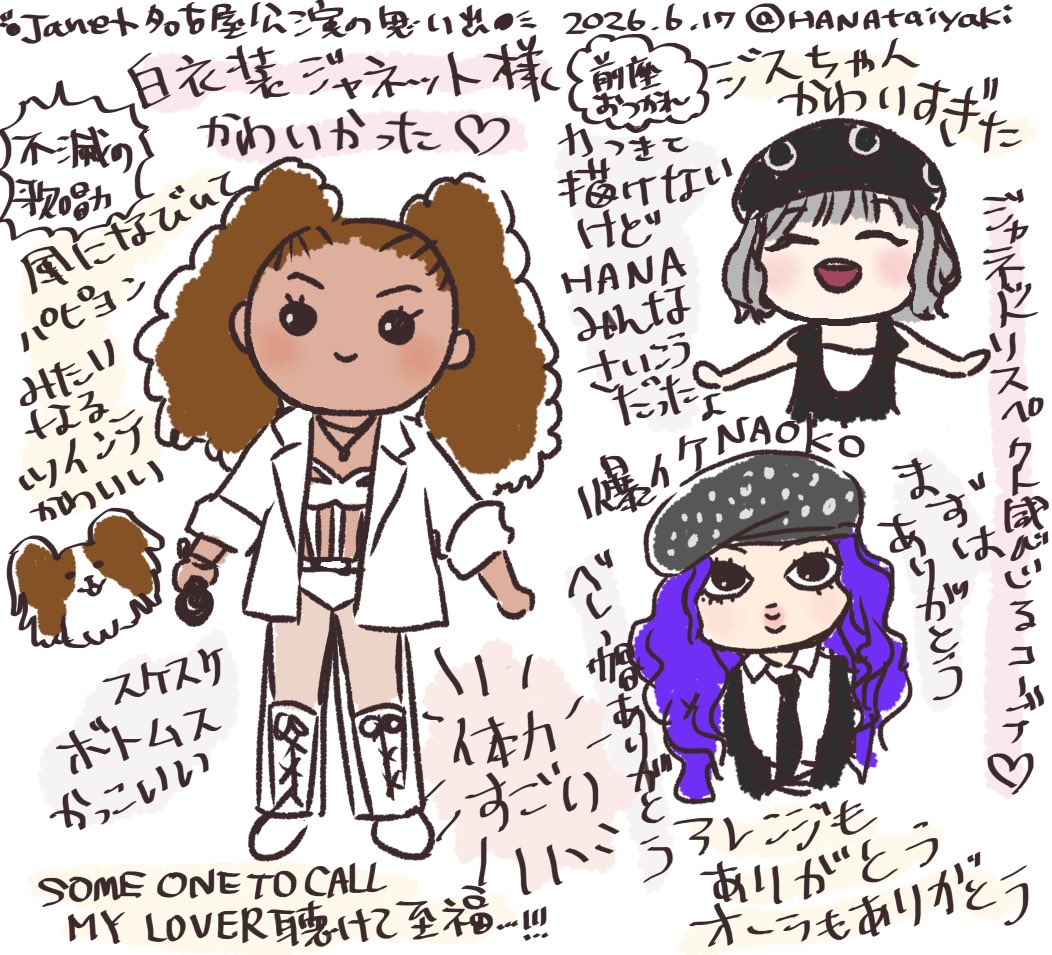 Janet名古屋公演の思い出
2026.6.17 @HANAtaiyaki
白衣装ジャネット様
かわいかった♡
不滅の
歌唱力
風になびいて
パピヨン
みたい
なる
ツインテ
かわいい
スケスケ
ボトムス
かっこいい
体力
すごい
SOME ONE TO CALL
MY LOVER聴けて至福…!!!
前座
おつかれ
ジスちゃん
かわいすぎた
力つきて
描けない
けど
HANA
みんな
さいこう
だったよ
ジャネットリスペクト感じるコーデ♡
爆イケNAOKO
まずは
ありがとう
ベレー帽ありがとう
アレンジも
ありがとう
オーラもありがとう